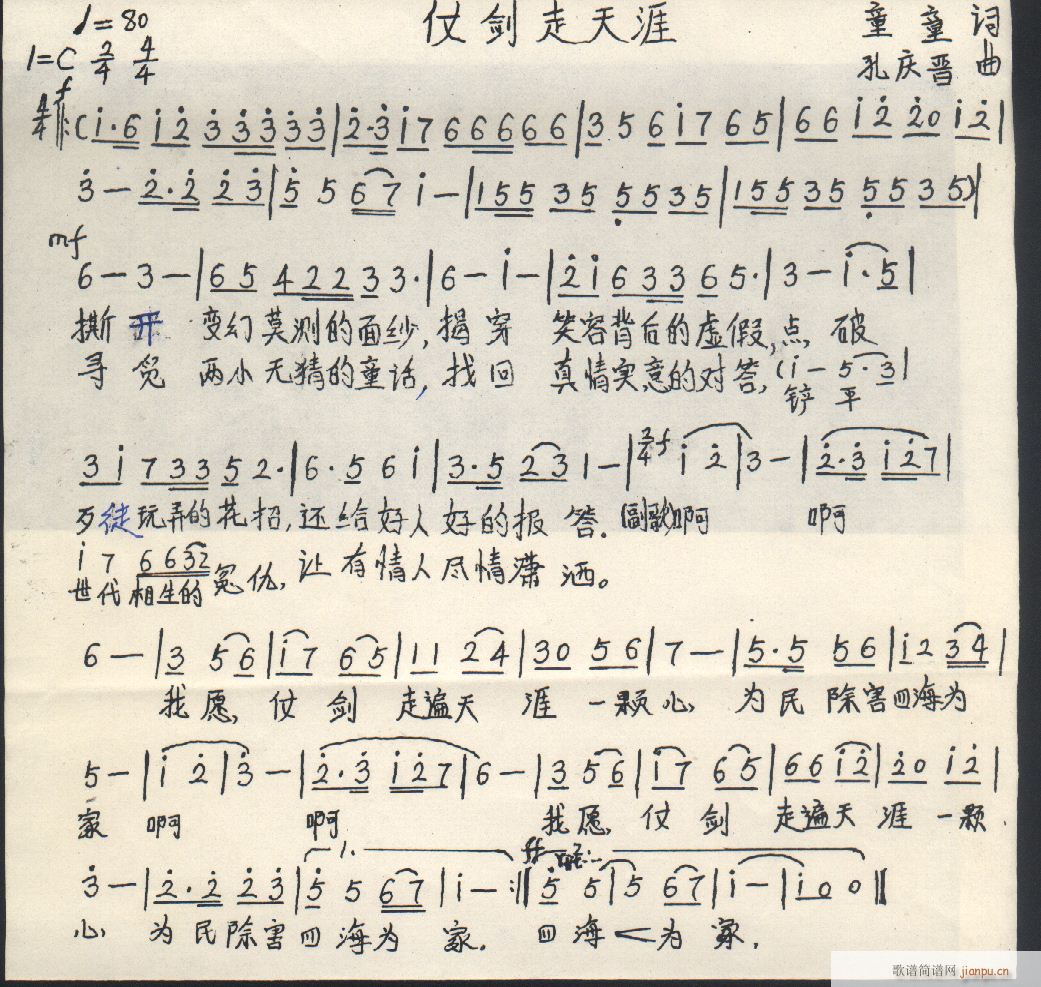 ♩=80 仗剑走天涯 童童 词
1=C 2/4 4/4 孔庆晋 曲
f
4/4 ‖:(i·6 i2 33333|2·3i7 66666|356i7 65|66 i2 20 i2|
3— 2·2 23|5 5 67 i—|155 35 5535|155 35 5535)|
mf
6—3—|65 422 33·|6—i—|2i 633 65·|3—i·5|
撕开 变幻莫测的面纱,揭穿 笑容背后的虚假,点破
寻觅 两小无猜的童话,找回 真情实意的对答,(i—5·3|
铲平
3i 7335 2·|6·5 6i|3·5 231—|2/4 f i 2|3—|2·3 i27|
歹徒玩弄的花招,还给好人好的报答.副歌啊 啊
i7 6632
世代相生的冤仇,让有情人尽情潇洒。
6—|3 56|i7 65|11 24|30 56|7—|5·5 56|i2 34|
我愿,仗剑 走遍天涯 一颗心, 为民除害四海为
5—|i 2|3—|2·3 i27|6—|3 56|i7 65|66 i2|20 i2|
家 啊 啊 我愿,仗剑 走遍天涯 一颗
1. ff 2.
3—|2·2 23|5 5 67|i—:‖5 5|5 67|i—|i0 0‖
心, 为民除害四海为家. 四海<为家.
歌谱简谱网 jianpu.cn